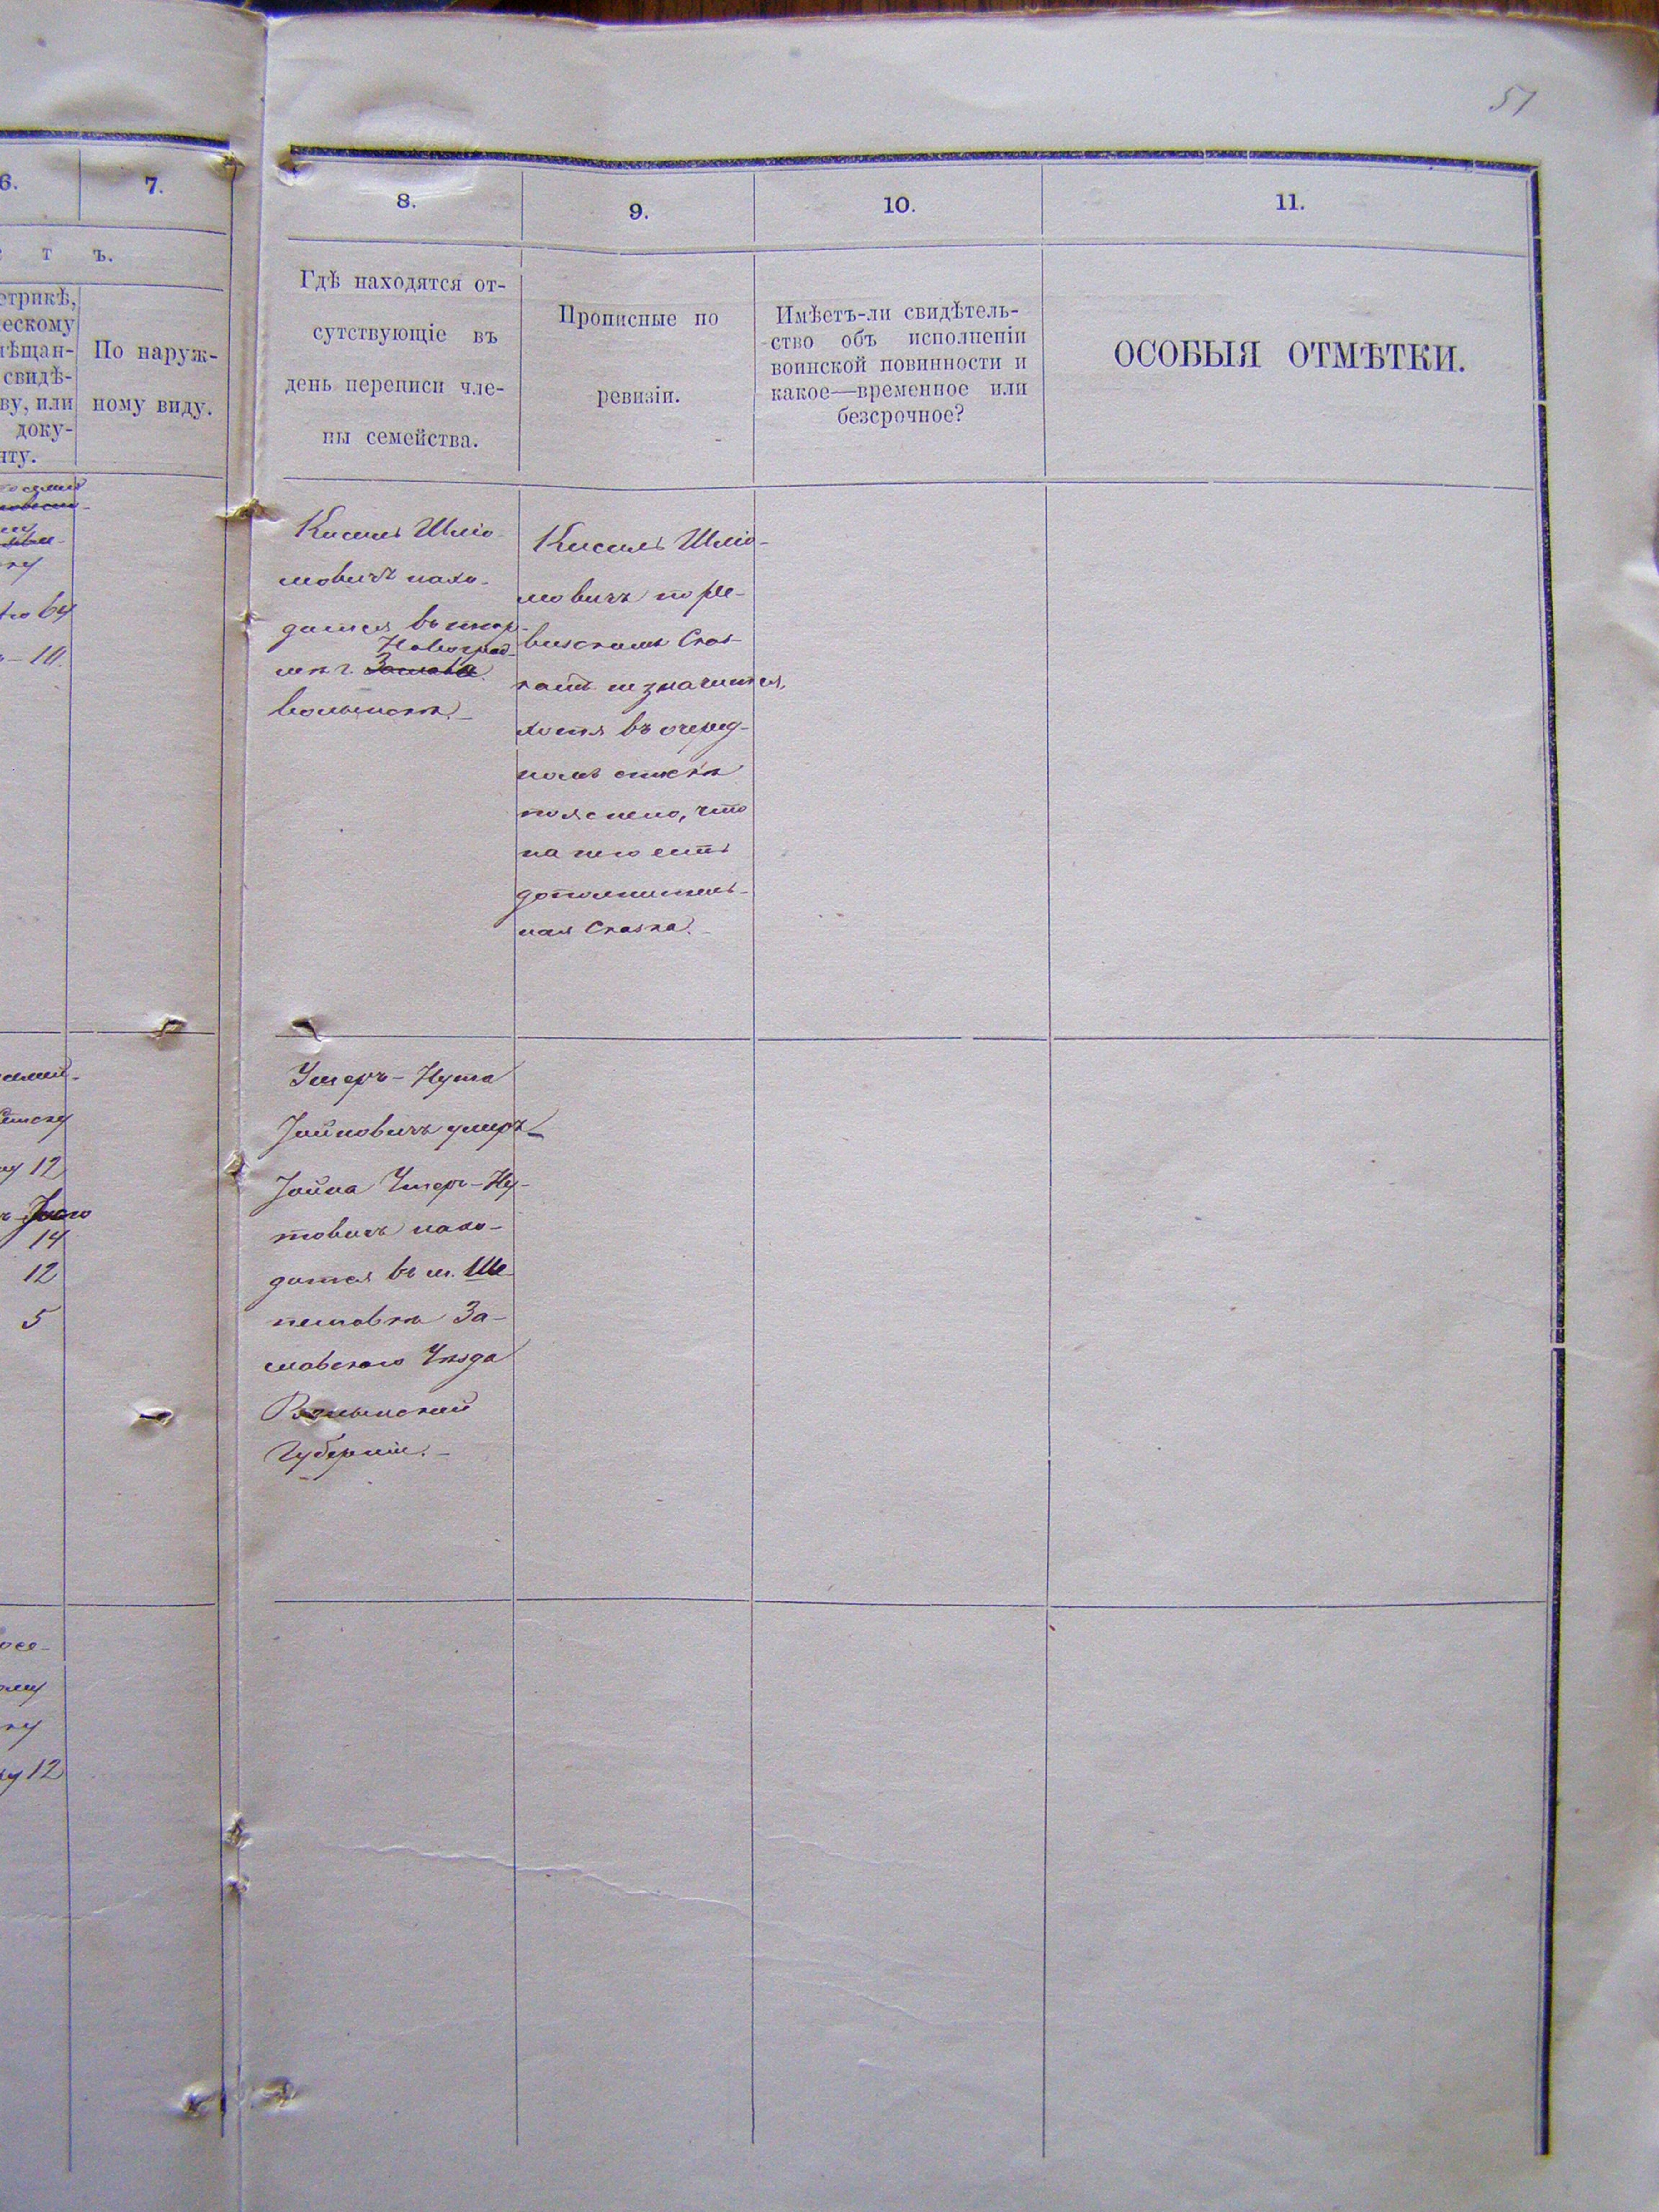 51
6.
7.
т ъ.
етрикѣ,
ескому
ѣщан-
свидѣ-
ву, или
доку-
нту.
По наруж-
ному виду.
64
10.
12
14
12
5
12
8.
9.
10.
11.
Гдѣ находятся от-
сутствующіе въ
день переписи чле-
ны семейства.
Прописные по
ревизіи.
Имѣетъ-ли свидѣтель-
ство объ исполненіи
воинской повинности и
какое—временное или
безсрочное?
ОСОБЫЯ ОТМѢТКИ.
Кисиль Шліо-
мовичъ нахо-
дится въ
Новоград-
г. Заслава
волынскѣ.
Кисиль Шліо-
мовичъ по ре-
визскимъ Сказ-
камъ не значится,
хотя въ очеред-
номъ спискѣ
пояснено, что
на него есть
дополнитель-
ная Сказка.
Умеръ-Нута
Іойновичъ умеръ
Іойна Умеръ-Ну-
товичъ нахо-
дится въ м. Ше-
петовкѣ За-
славскаго Уѣзда
Волынской
Губерніи.